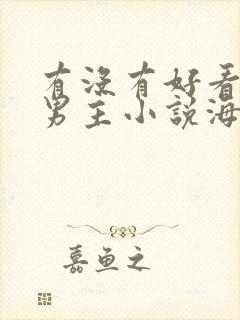 有没有好看
男主小説海
嘉鱼之